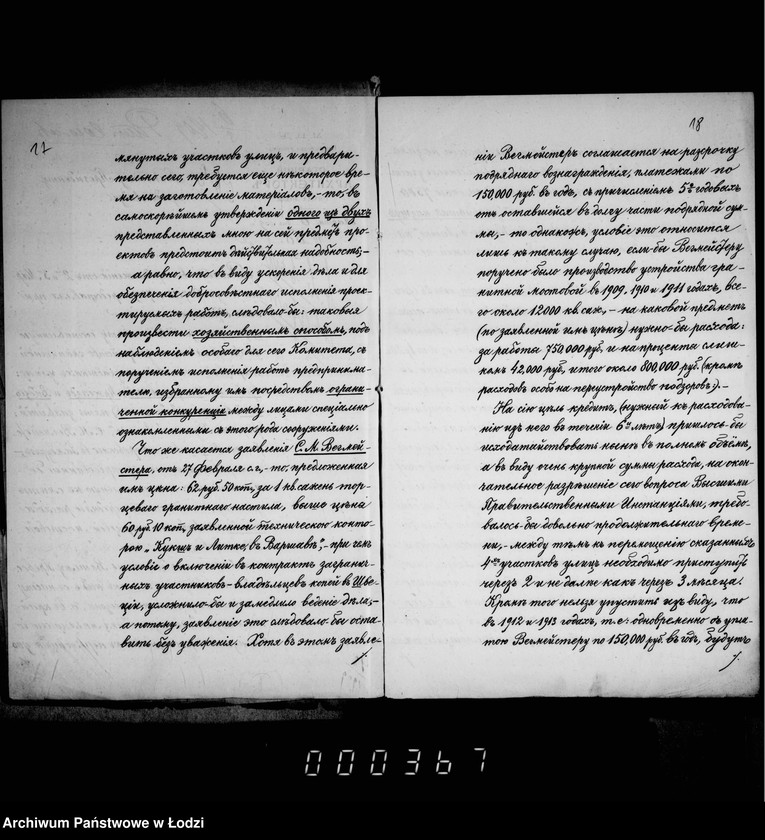 17
мянутыхъ участковъ улицъ, и предвари-
тельно сего, требуется еще нѣкоторое вре-
мя на заготовленіе матеріаловъ, – то, въ
самоскорѣйшемъ утвержденіи одного изъ двухъ
представленныхъ мною на сей предметъ про-
ектовъ предстоитъ дѣйствительная надобность; –
а равно, что въ виду ускоренія дѣла и для
обезпеченія добросовѣстнаго исполненія проек-
тируемыхъ работъ, слѣдовало-бы: таковыя
произвести хозяйственнымъ способомъ, подъ
наблюденіемъ особаго для сего Комитета, съ
порученіемъ исполненія работъ предпринима-
телю, избранному имъ посредствомъ ограни-
ченной конкуренціи между лицами спеціально
ознакомленными съ этого рода сооруженіями.
Что же касается заявленія С. М. Вегмей-
стера, отъ 27 Февраля с.г., – то, предложенная
имъ цѣна: 62 руб. 50 коп., за 1 кв. сажень тор-
цеваго гранитнаго настила, выше цѣны
60 руб. 10 коп., заявленной техническою конто-
рою „Кукшъ и Литке, въ Варшавѣ", – при чемъ
условіе о включеніи въ контрактъ загранич-
ныхъ участниковъ – владѣльцевъ копей въ Шве-
ціи, усложнило-бы и замедлило веденіе дѣла, –
а потому, заявленіе это слѣдовало-бы оста-
вить безъ уваженія. Хотя въ этомъ заявле-
/.
18
ніи Вегмейстеръ соглашается на разсрочку
подряднаго вознагражденія, платежами по
150,000 руб. въ годъ, съ причисленіемъ 5% годовыхъ
отъ оставшейся въ долгу части подрядной сум-
мы, – то однакожъ, условіе это относится
лишь къ такому случаю, если бы Вегмейстеру
поручено было производство устройства гра-
нитной мостовой въ 1909, 1910 и 1911 годахъ, все-
го около 12000 кв. саж., – на каковой предметъ
(по заявленной имъ цѣнѣ) нужно-бы расхода:
за работы 750,000 руб. и на проценты слиш-
комъ 42,000 руб., итого около 800,000 руб. (кромѣ
расходовъ особо на переустройство подзоровъ). –
На сію цѣль кредитъ, (нужный къ расходова-
нію изъ него въ теченіи 6ти лѣтъ) пришлось-бы
исходатайствовать нынѣ въ полномъ объёмѣ,
а въ виду очень крупной суммы расхода, на окон-
чательное разрѣшеніе сего вопроса Высшими
Правительственными Инстанціями, требо-
валось-бы довольно продолжительнаго време-
ни, – между тѣмъ къ перемощенію сказанныхъ
4хъ участковъ улицъ необходимо приступить
черезъ 2 и не далѣе какъ черезъ 3 мѣсяца.
Кромѣ того нельзя упустить изъ виду, что
въ 1912 и 1913 годахъ, т. е. одновременно съ упла-
тою Вегмейстеру по 150,000 руб. въ годъ, будутъ
/.
000367
Archiwum Państwowe w Łodzi